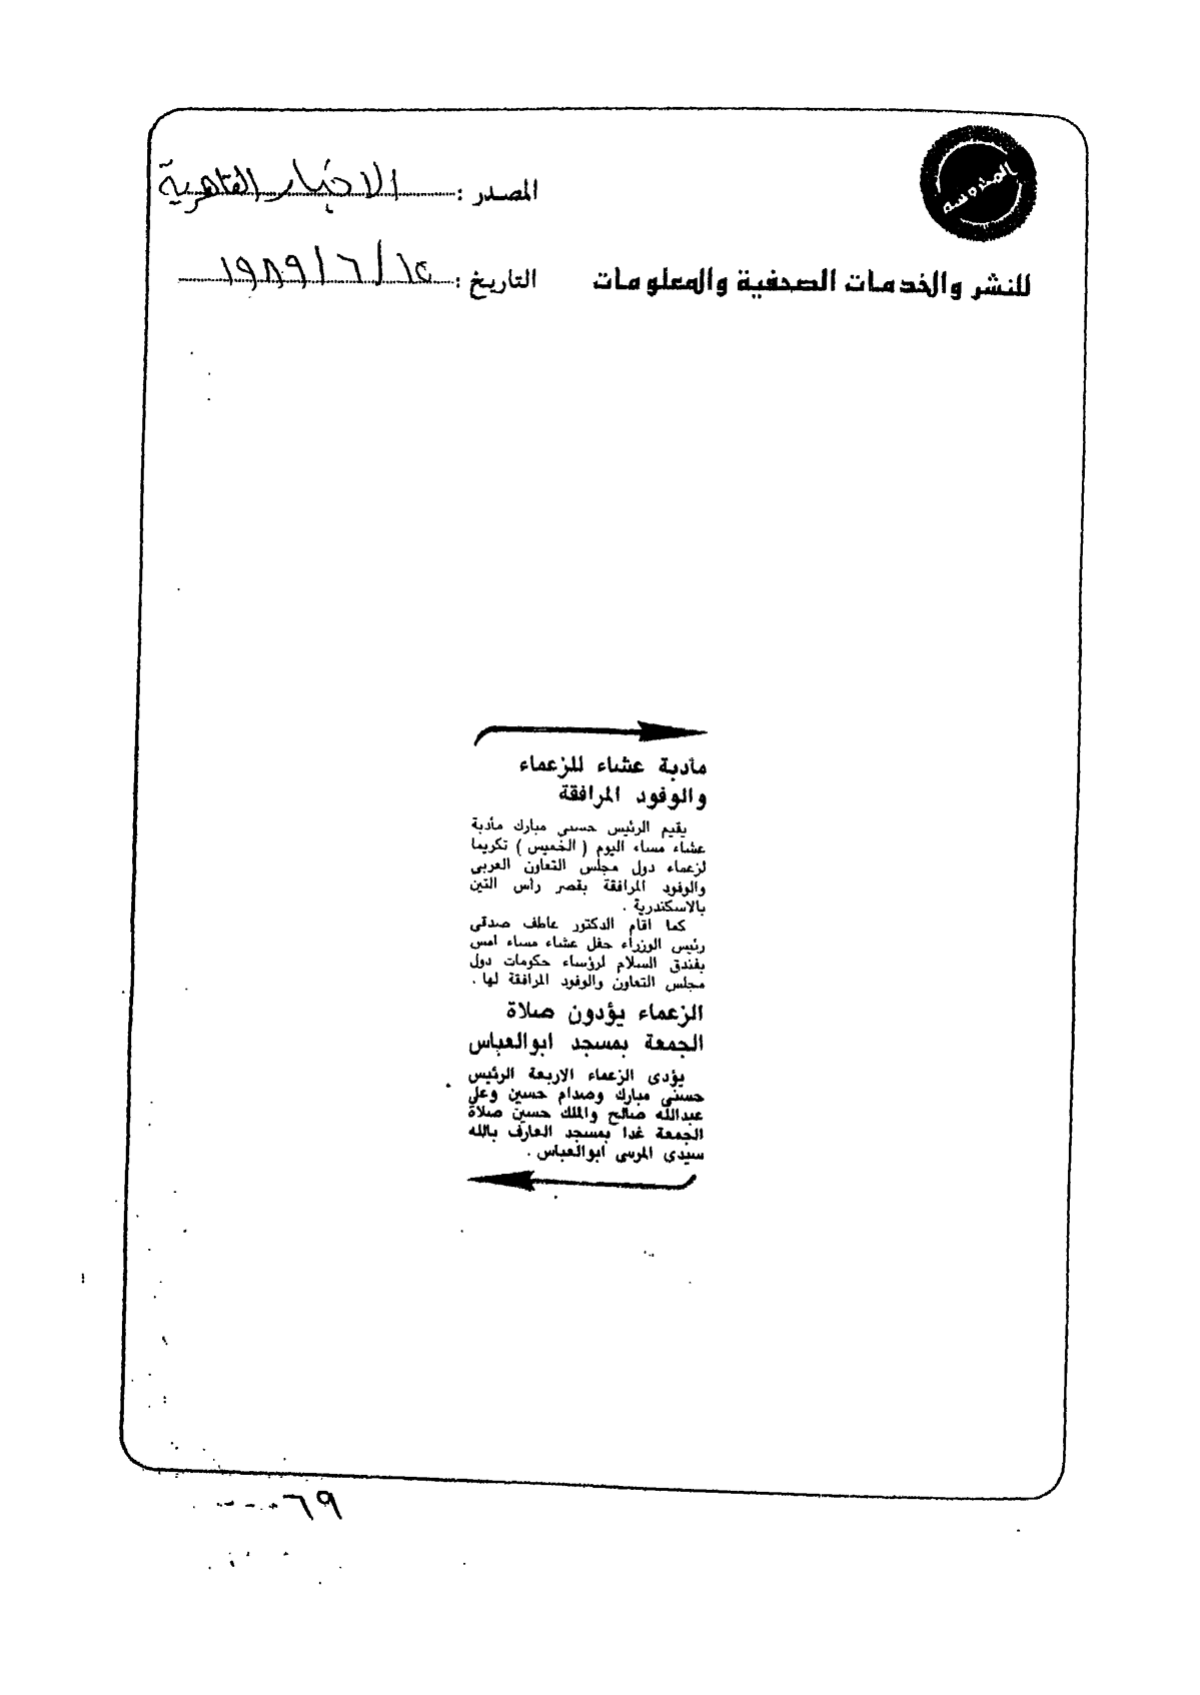 المحروسه
المصدر : الاخبار القاهرية
للنشر والخدمات الصحفية والمعلومات
التاريخ : ١٩٨٩/٦/١٥
مأدبة عشاء للزعماء
والوفود المرافقة
يقيم الرئيس حسنى مبارك مأدبة
عشاء مساء اليوم ( الخميس ) تكريما
لزعماء دول مجلس التعاون العربى
والوفود المرافقة بقصر رأس التين
بالاسكندرية .
كما اقام الدكتور عاطف صدقى
رئيس الوزراء حفل عشاء مساء امس
بفندق السلام لرؤساء حكومات دول
مجلس التعاون والوفود المرافقة لها .
الزعماء يؤدون صلاة
الجمعة بمسجد ابوالعباس
يؤدى الزعماء الاربعة الرئيس
حسنى مبارك وصدام حسين وعلى
عبدالله صالح والملك حسين صلاة
الجمعة غدا بمسجد العارف بالله
سيدى المرسى ابوالعباس .
٦٩